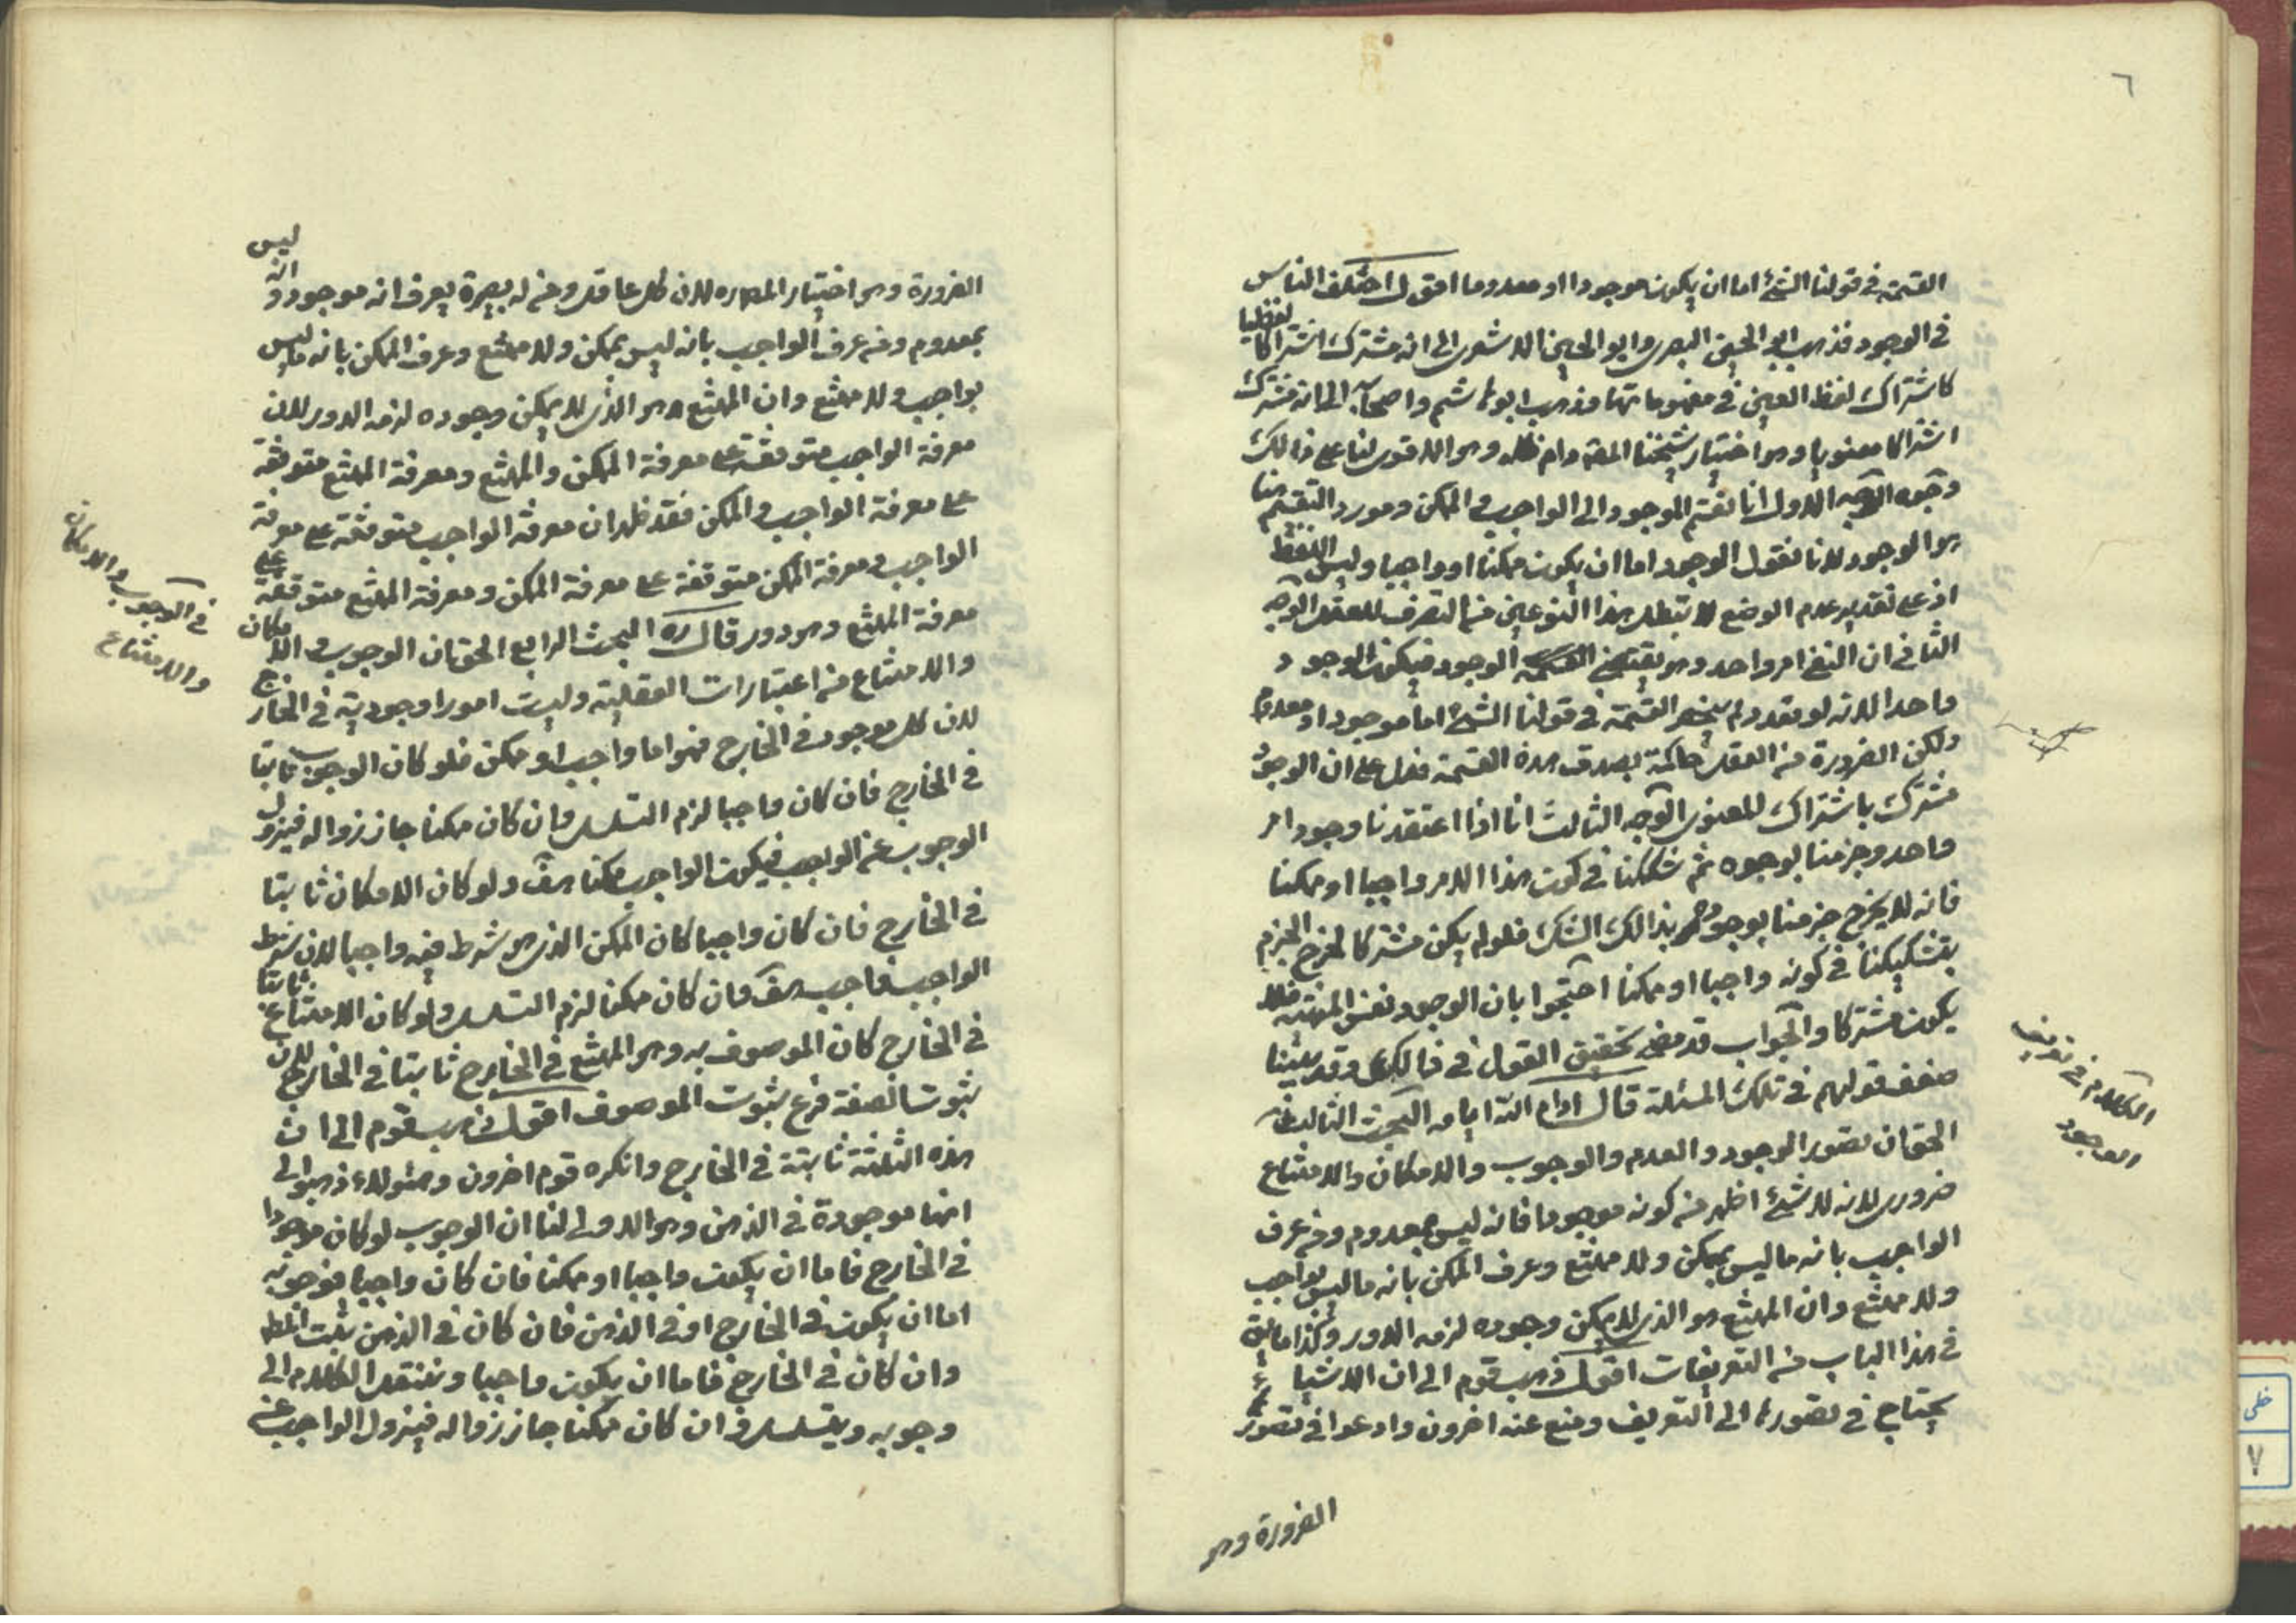 ٦
القسمة في قولنا الشئ اما ان يكون موجودا او معدوما اقول اختلف الناس
في الوجود فذهب ابو الحسين البصرى وابو الحسن الاشعرى الى انه مشترك اشتراكا لفظيا
كاشتراك لفظ العين في مفهوماتها وذهب ابو هاشم واصحابه الى انه مشترك
اشتراكا معنويا وهو اختيار شيخنا المصـ دام ظله وهو الاقوى لنا على ذالك
وجوه الوجه الاول انا نقسم الموجود الى الواجب والممكن ومورد التقسيم منا
هو الوجود لانا نقول الوجود اما ان يكون ممكنا او واجبا وليس اللفظ
اذ على تقدير عدم الوضع لا تبطل هذا النوعين من التصرف للعقل الوجه
الثانى ان النفى امر واحد وهو نقيض الوجود فيكون الوجود
واحدا لانه لو تعدد لم ينحصر القسمة في قولنا الشئ اما موجود او معدوم
ولكن الضرورة من العقل حاكمة بصدق هذه القسمة فعل على ان الوجود
مشترك باشتراك المعنوى الوجه الثالث انا اذا اعتقدنا وجود امر
واحد وجزمنا بوجوده ثم شككنا في كون هذا الامر واجبا او ممكنا
فانه لا يخرج جزمنا بوجوده بذالك الشك فلو لم يكن مشتركا لخرج الجزم
بتشكيكنا في كونه واجبا او ممكنا احتجوا بان الوجود نفس المهية فلا
يكون مشتركا والجواب قد مضى تحقيق القول في ذالك وقد بينا
ضعف قولهم في تلك المسئلة قال ادام الله ايامه البحث الثالث في
الحق ان تصور الوجود والعدم والوجوب والامكان والامتناع
ضرورى لانه لا شئ اظهر من كونه موجودا فانه ليس بمعدوم ومن عرف
الواجب بانه ما ليس بممكن ولا ممتنع وعرف الممكن بانه ما ليس بواجب
ولا ممتنع وان الممتنع هو الذى لا يمكن وجوده لزمه الدور وكذا ما يق
في هذا الباب من التعريفات اقول ذهب قوم الى ان الاشياء
يحتاج في تصورها الى التعريف ومنع عنه اخرون وادعوا في تصورها
الضرورة وهو
الكلام في تعريف
الوجود
الضرورة وهو اختيار المصـ ره لان كل عاقل ومن له بصيرة يعرف انه موجود وانه ليس
بمعدوم ومن عرف الواجب بانه ليس بممكن ولا ممتنع وعرف الممكن بانه ما ليس
بواجب ولا ممتنع وان الممتنع هو الذى لا يمكن وجوده لزمه الدور لان
معرفة الواجب متوقفة على معرفة الممكن والممتنع ومعرفة الممتنع متوقفة
على معرفة الواجب والممكن فقد ظهر ان معرفة الواجب متوقفة على معرفة
الواجب ومعرفة الممكن متوقفة على معرفة الممكن ومعرفة الممتنع متوقفة على
معرفة الممتنع وهو دور قال ره البحث الرابع الحق ان الوجوب والامكان
والامتناع من اعتبارات العقلية وليست امورا وجودية في الخارج
لان كل موجود في الخارج فهو اما واجب او ممكن فلو كان الوجوب ثابتا
في الخارج فان كان واجبا لزم التسلسل وان كان ممكنا جاز زواله فيزول
الوجوب عن الواجب فيكون الواجب ممكنا هف ولو كان الامكان ثابتا
في الخارج فان كان واجبا كان الممكن الذى هو شرط فيه واجبا لان شرط
الواجب واجب هف وان كان ممكنا لزم التسلسل ولو كان الامتناع ثابتا
في الخارج كان الموصوف به وهو الممتنع في الخارج ثابتا في الخارج لان
ثبوت الصفة فرع ثبوت الموصوف اقول ذهب قوم الى ان
هذه الثلثة ثابتة في الخارج وانكره قوم اخرون وهئولاء ذهبوا الى
انها موجودة في الذهن وهو الاولى لنا ان الوجوب لو كان موجودا
في الخارج فاما ان يكون واجبا او ممكنا فان كان واجبا فوجوبه
اما ان يكون في الخارج او في الذهن فان كان في الذهن يثبت المط
وان كان في الخارج فاما ان يكون واجبا وننقل الكلام الى
وجوبه ويتسلسل وان كان ممكنا جاز زواله فيزول الواجب عن
في الوجوب والامكان
والامتناع
خطى
٧